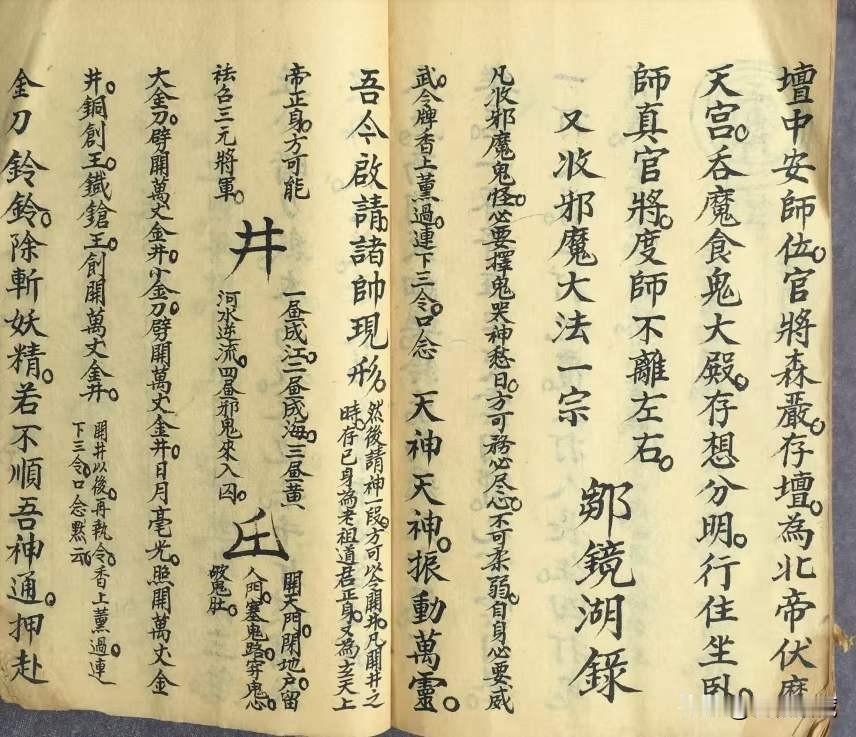 壇中安師位。官將森嚴。存壇。為北帝伏魔
天宫。吞魔食鬼大殿。存想分明。行住坐卧。
師真官將。度師不離左右。
一又收邪魔大法一宗
鄒鏡湖錄
凡收邪魔鬼怪。必要擇鬼哭神愁日。方可務必尽心。不可柔弱。自身必要威
武。令牌香上薰過。連下三令。口念
天神天神。振動萬靈。
吾今啟請。諸帥現形。
然後請神一段。方可以令開井。凡開井之
時。存已身為老祖道君正身。又為玄天上
帝正身。方可能
祛召三元將軍。
井
一昼成江。二昼成海。三昼黄
河水逆流。四昼邪鬼來入囚。
丘
開天門。閉地户。留
人門。塞鬼路。穿鬼心。
破鬼肚。
大金刀。劈開萬丈金井。小金刀。劈開萬丈金井。日月毫光。照開萬丈金
井。銅創王。鐵鎗王。創開萬丈金井。
開井以後。再執令。香上薰過。連
下三令。口念默云。
金刀鈴鈴。除斬妖精。若不順吾神通。押赴